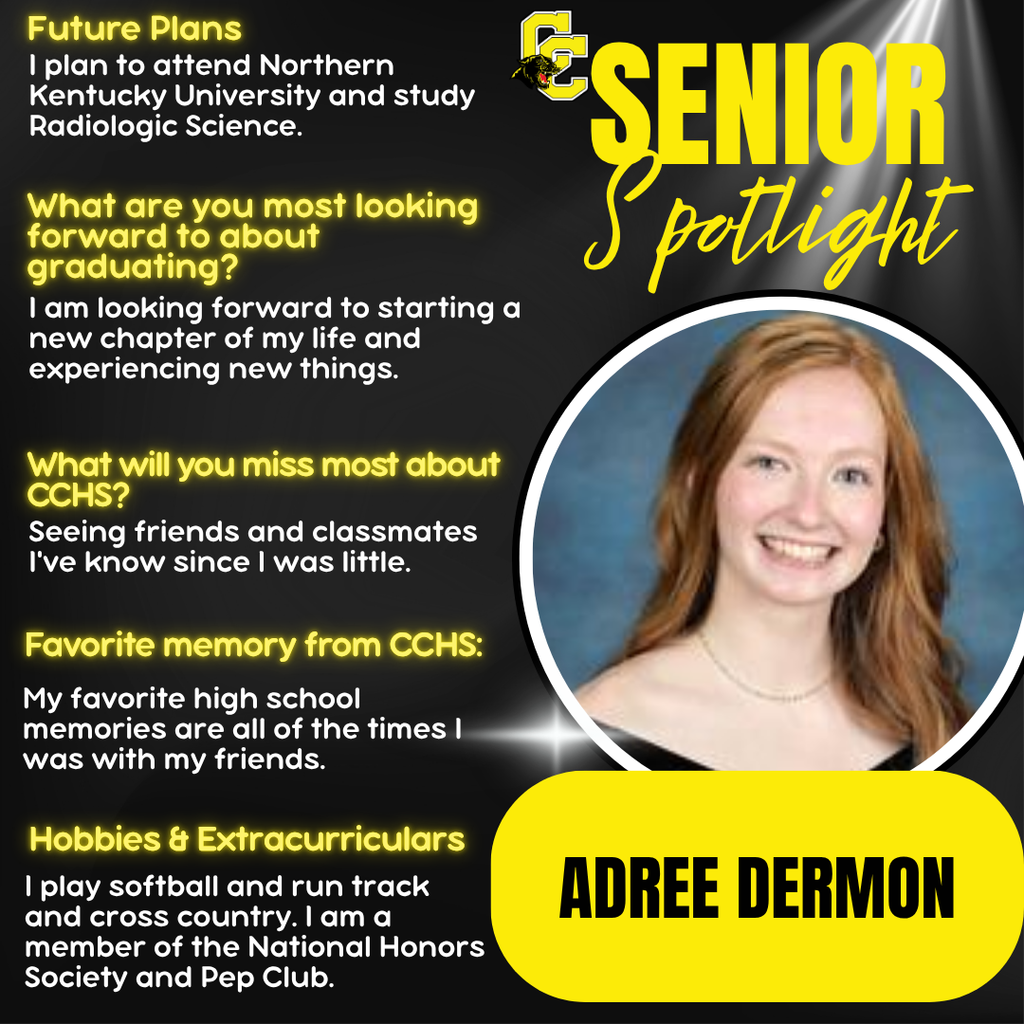 Future Plans
I plan to attend Northern
Kentucky University and study
Radiologic Science.
What are you most looking
forward to about
graduating?
I am looking forward to starting a
new chapter of my life and
experiencing new things.
What will you miss most about
CCHS?
Seeing friends and classmates
I've know since I was little.
Favorite memory from CCHS:
My favorite high school
memories are all of the times I
was with my friends.
Hobbies & Extracurriculars
I play softball and run track
and cross country. I am a
member of the National Honors
Society and Pep Club.
CC
SENIOR
Spotlight
ADREE DERMON